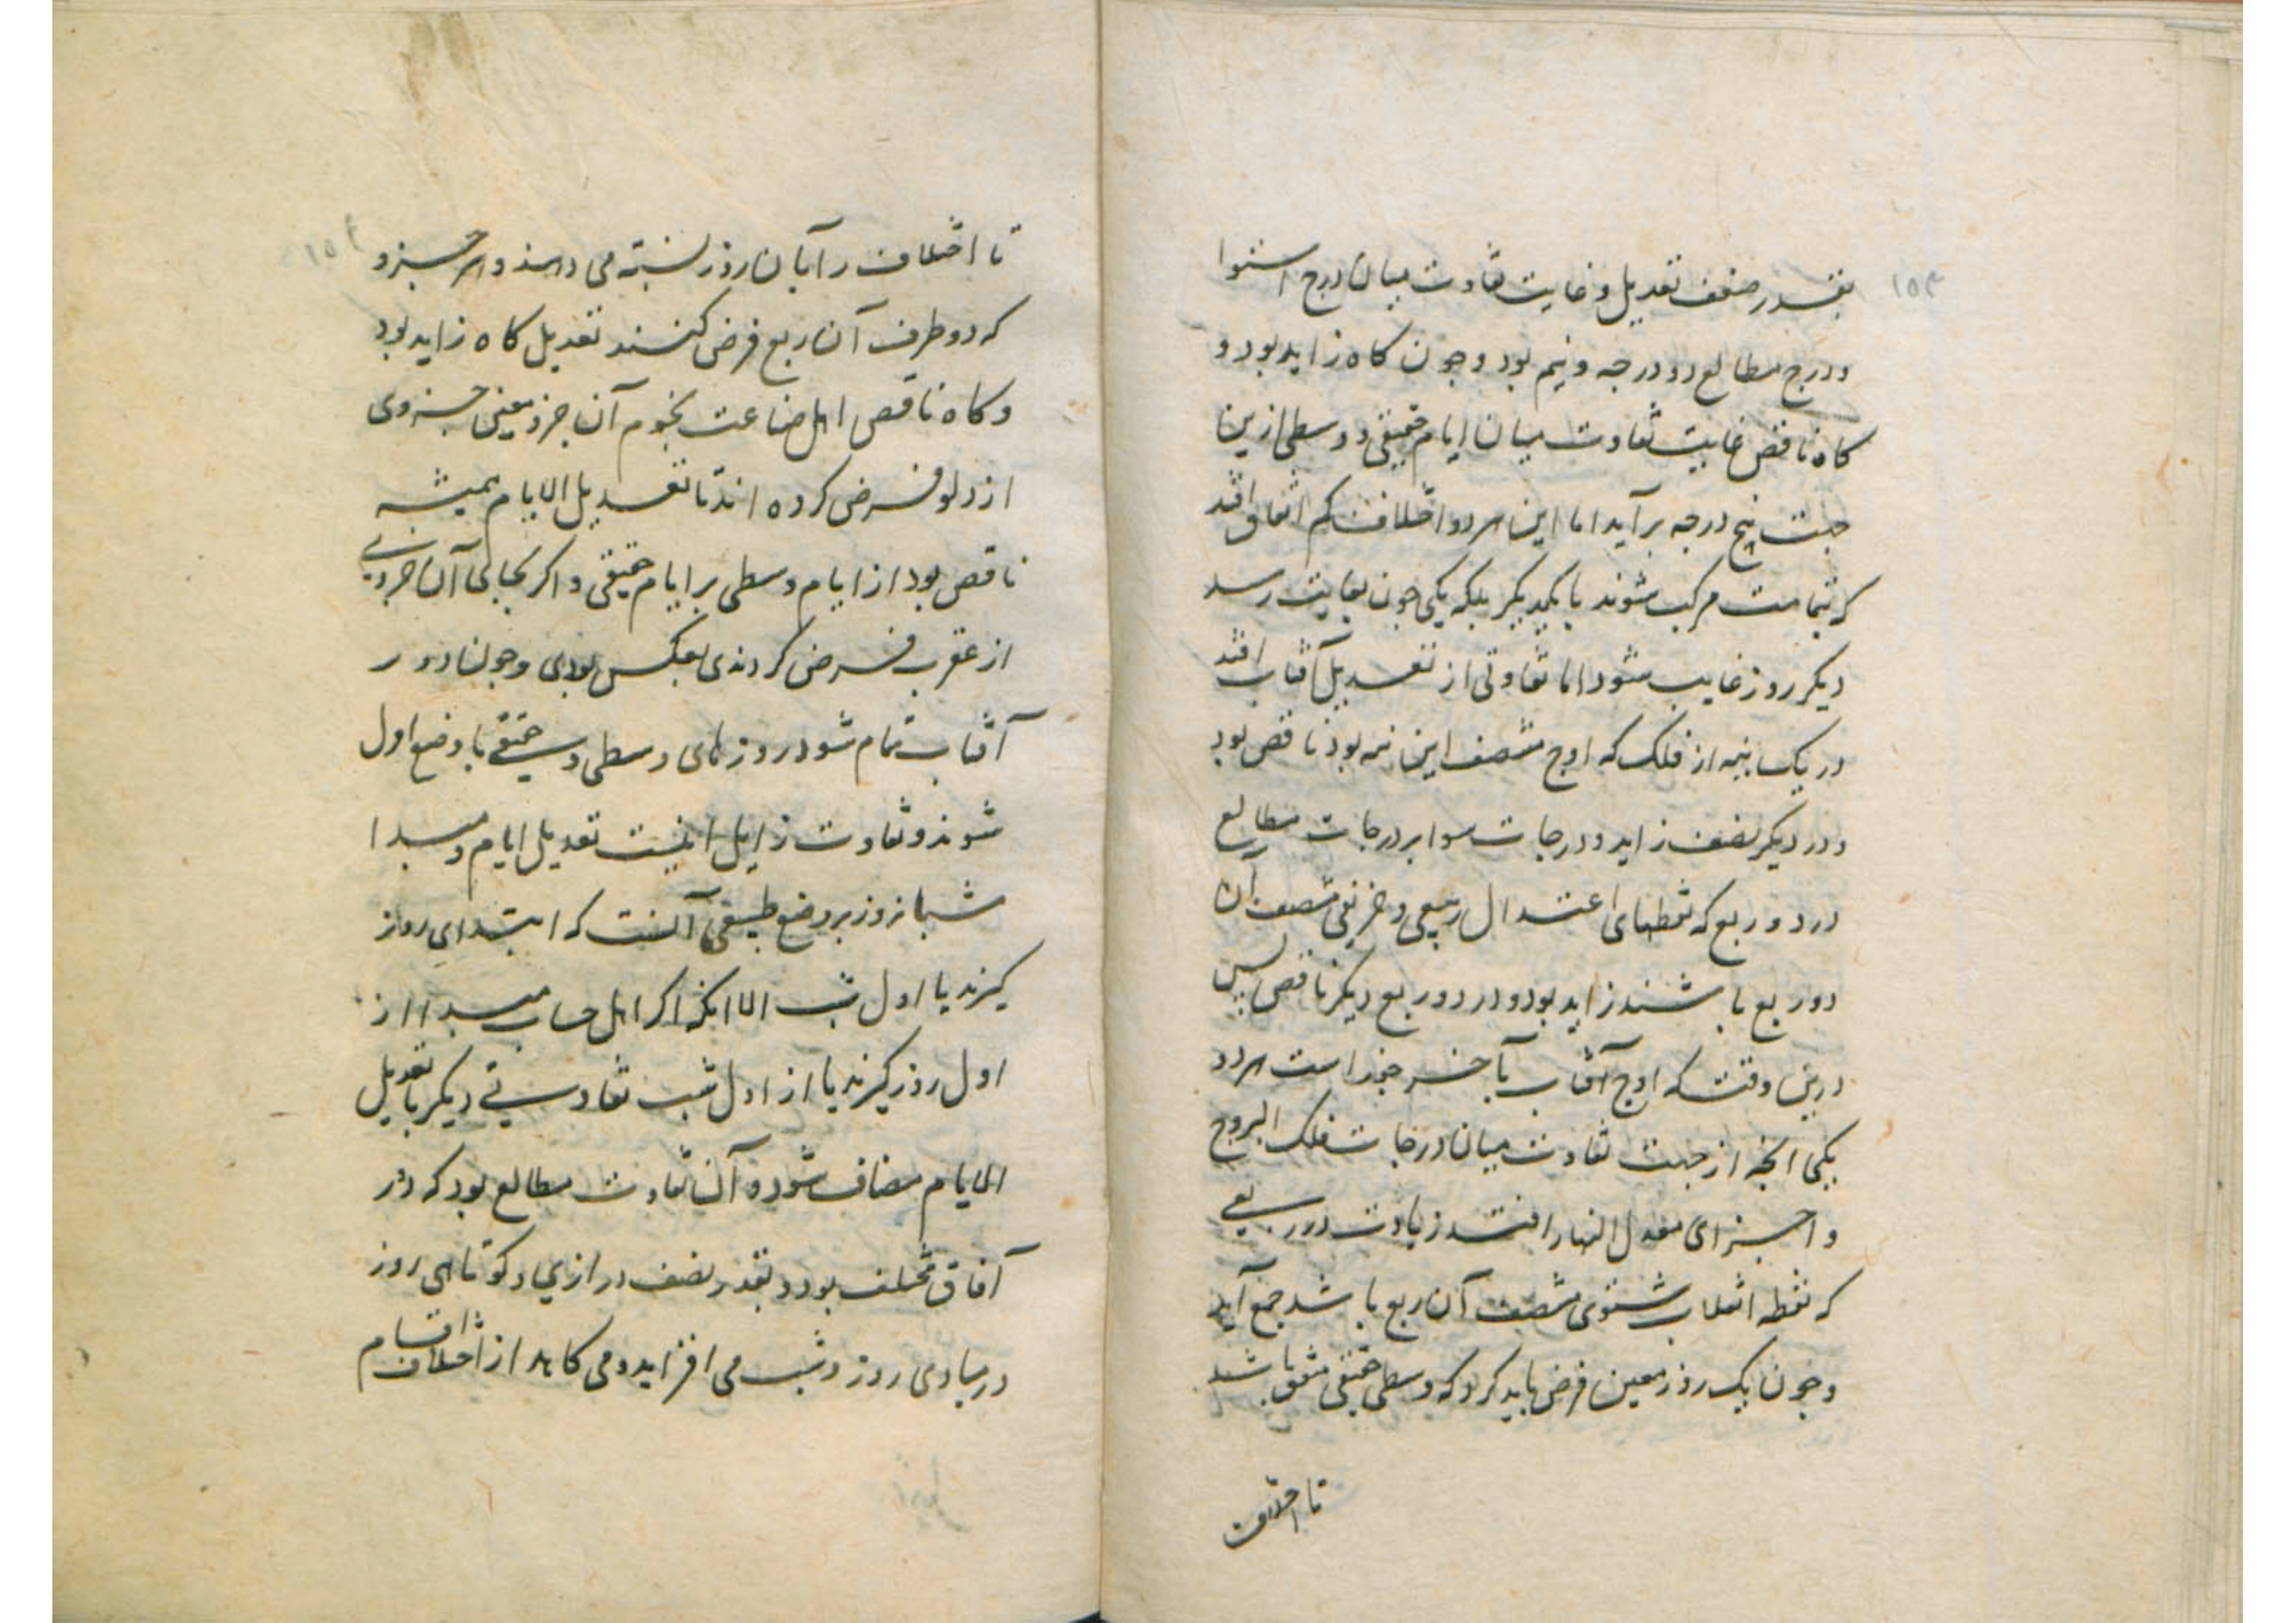 بقدر ضعف تعدیل و غایت تفاوت میان درج استوا
ودرج مطالع دو درجه و نیم بود وچون کاه زاید بود و
کاه ناقص غایت تفاوت میان ایام حقیقی و وسطی ازین
جهت پنج درجه برآید اما این هر دو اختلاف کم اتفاق افتد
که بتمامت مرکب شوند با یکدیکر بلکه یکی چون بغایت رسد
دیکر روز غایب شود اما تفاوتی از تعدیل آفتاب افتد
در یک نیمه از فلک که اوج منتصف این نیمه بود ناقص بود
ودر دیکر نصف زاید ودرجات سوا بر درجات مطالع
در دو ربع که نقطهای اعتدال ربیعی و خریفی منتصف آن
دو ربع باشند زاید بود ودر دو ربع دیکر ناقص پس
درین وقت که اوج آفتاب بآخر جوزاست هر دو
یکی انچه از جهت تفاوت میان درجات فلک البروج
و اجزای معدل النهار افتد زیادت در ربعی
که نقطه انقلاب شتوی منتصف آن ربع باشد جمع آید
وچون یک روز معین فرض باید کرد که وسطی حقیقی متفق باشد
تا اختلاف
۱۵۳
تا اختلاف را بآن روز نسبت می دهند و هر جزو
که دو طرف آن ربع فرض کنند تعدیل کاه زاید بود
وکاه ناقص اهل صناعت نجوم آن جزو معین جزوی
از دلو فرض کرده اند تا تعدیل الایام همیشه
ناقص بود از ایام وسطی بر ایام حقیقی واکر بجای آن جزوی
از عقرب فرض کردندی بعکس بودی وچون دور
آفتاب تمام شود روزهای وسطی و حقیقی با وضع اول
شوند و تفاوت زایل اینست تعدیل ایام و مبدا
شبانروز بر وضع طبیعی آنست که ابتدای روز
کیرند یا اول شب الا انکه اکر اهل حساب مبدا از
اول روز کیرند یا از اول شب تفاوتی دیکر با تعدیل
الایام مضاف شود و آن تفاوت مطالع بود که در
آفاق مختلف بود و بقدر نصف درازی و کوتاهی روز
در مبادی روز و شب می افزاید و می کاهد از اختلاف اقسام